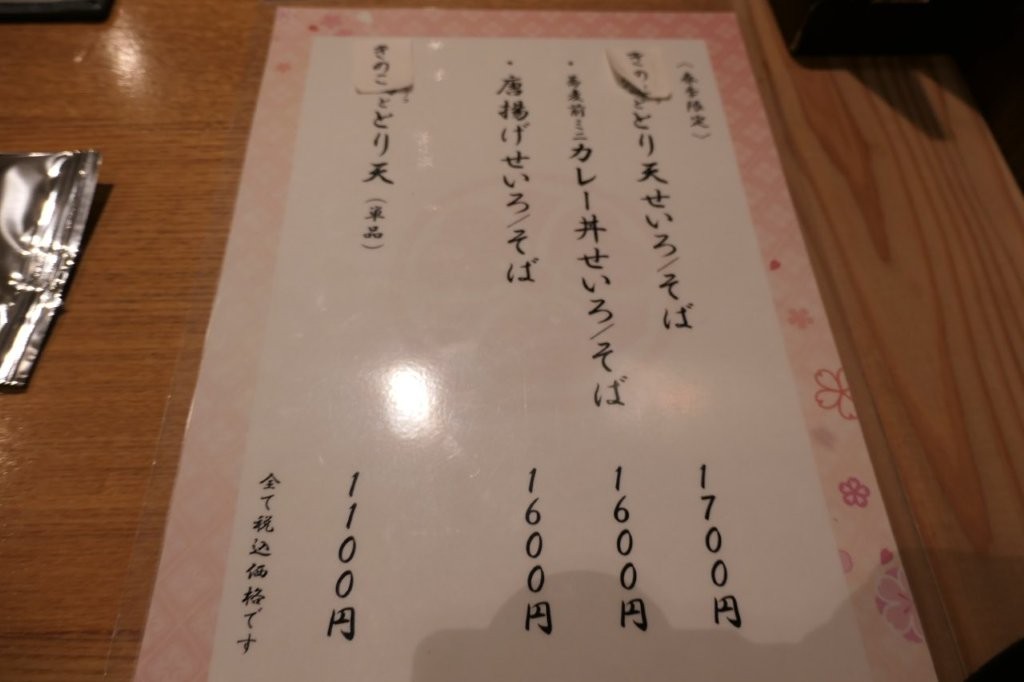 （春季限定）
きのことどり天せいろ/そば
1700円
・蕎麦前ミニカレー丼せいろ/そば
1600円
・唐揚げせいろ/そば
1600円
きのことどり天（単品）
1100円
全て税込価格です